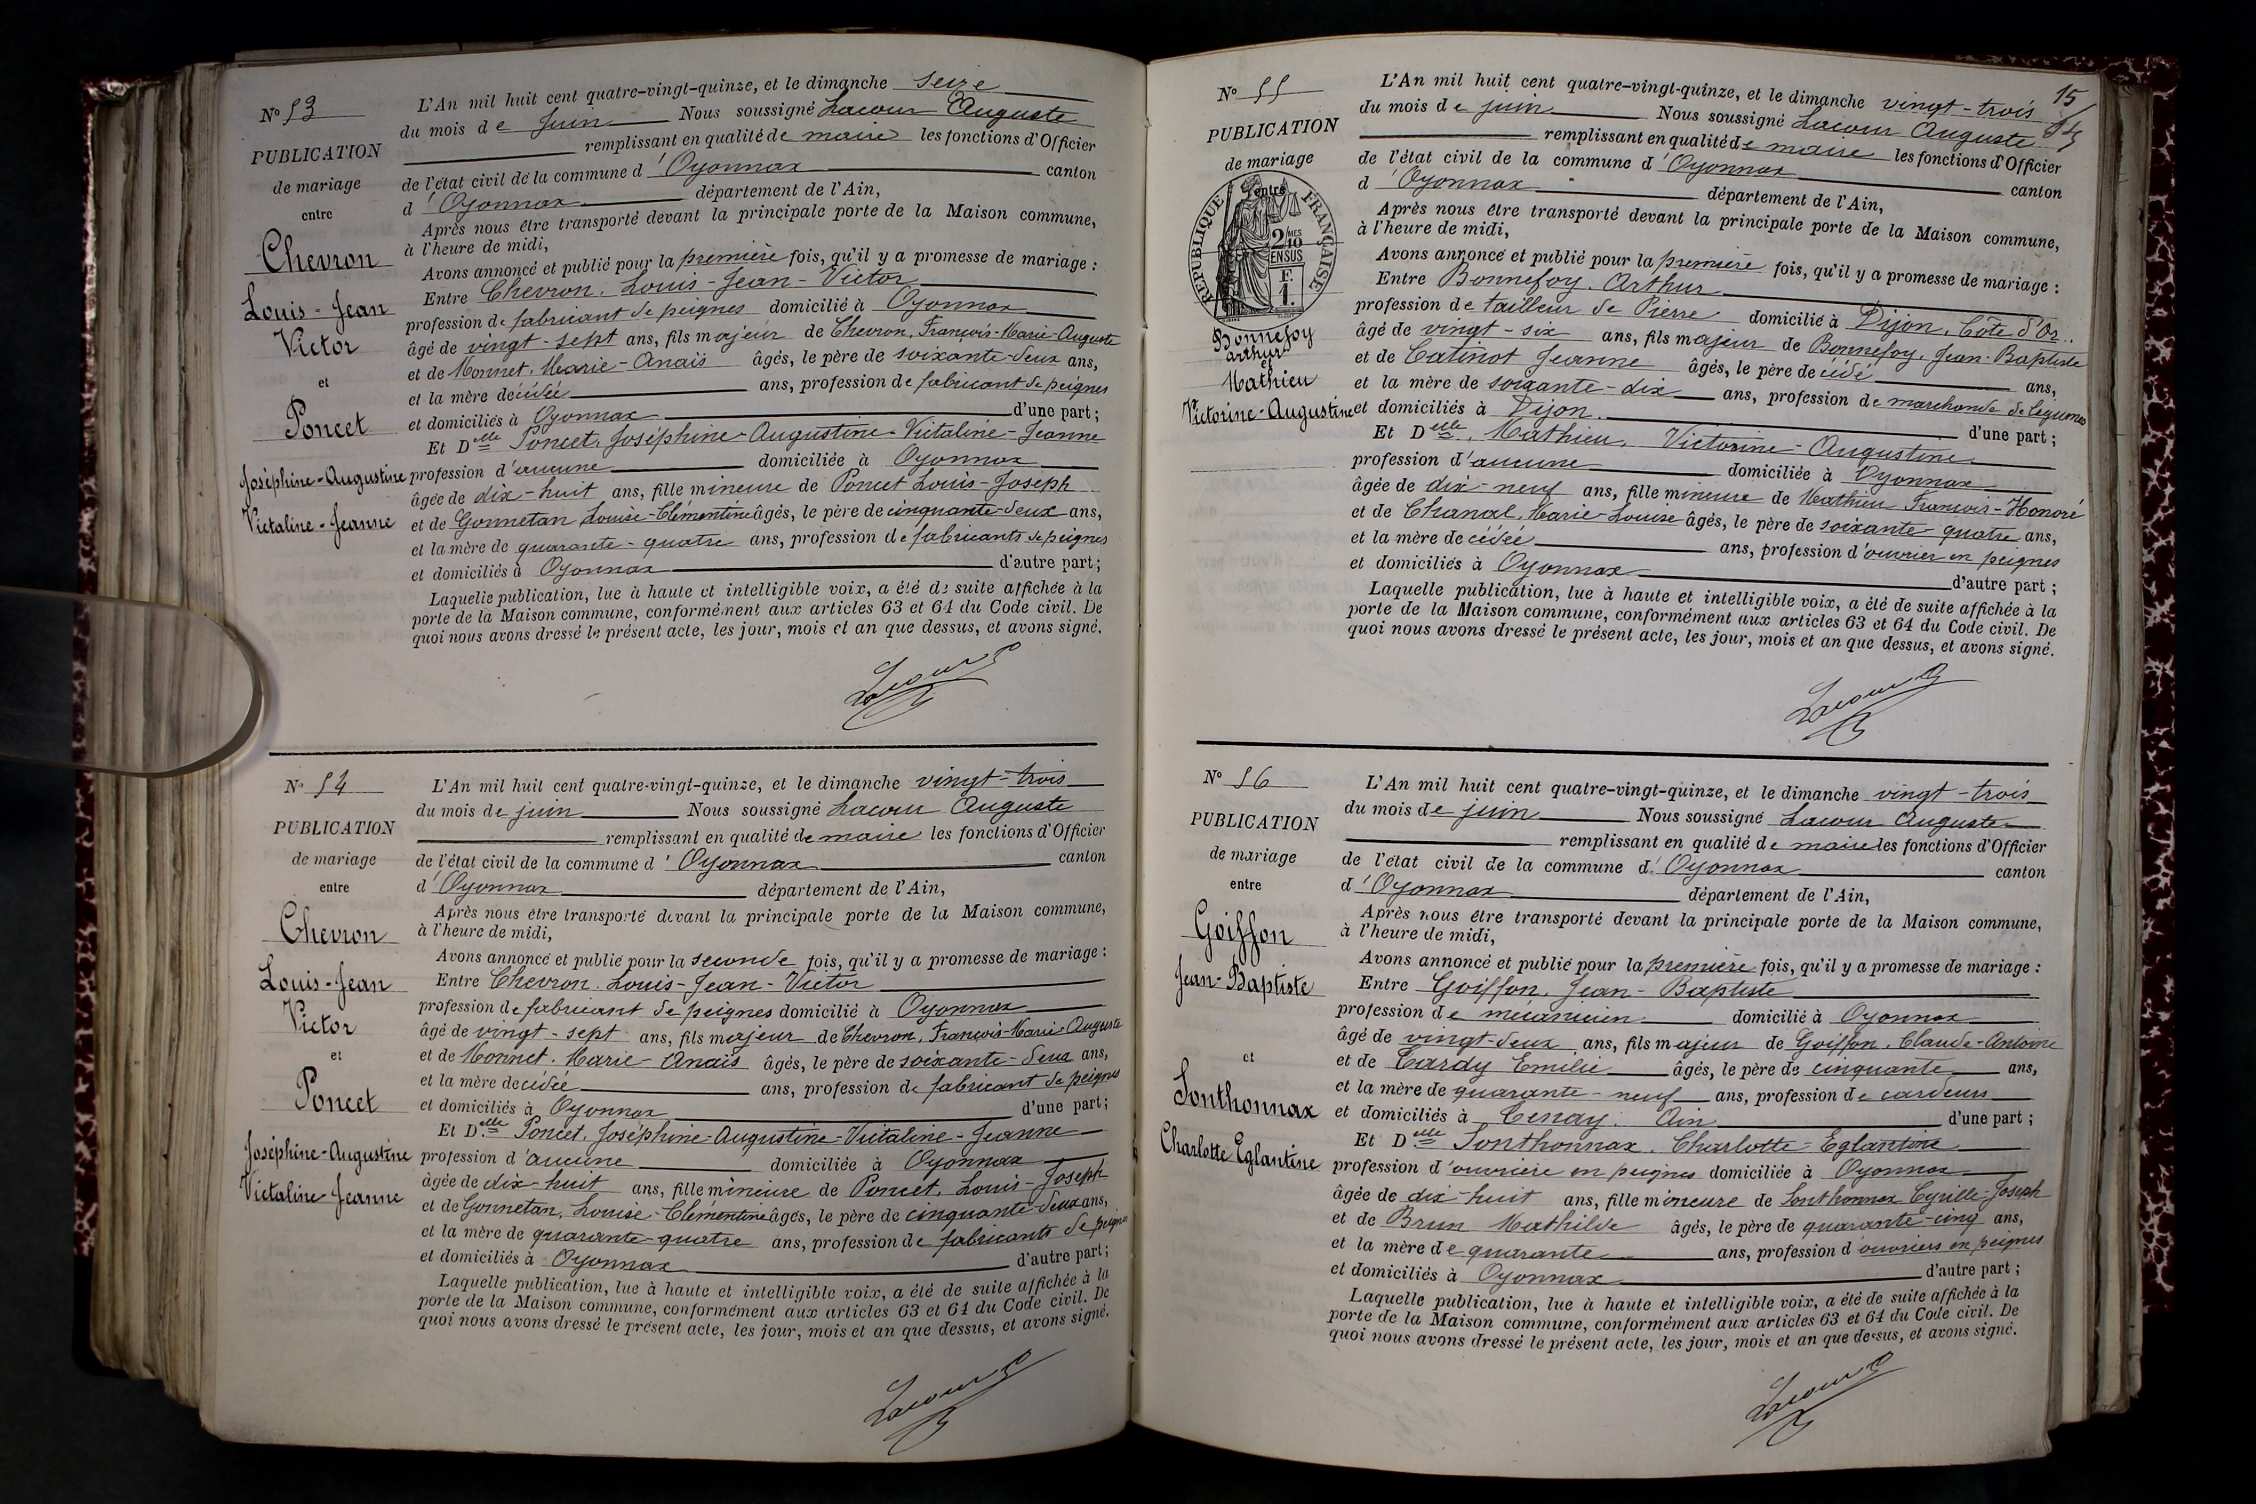 N° 53
PUBLICATION
de mariage
entre
Chevron
Louis-Jean
Victor
et
Poncet
Joséphine-Augustine
Victaline-Jeanne
L'An mil huit cent quatre-vingt-quinze, et le dimanche seize
du mois de Juin Nous soussigné Lacour Auguste
remplissant en qualité de maire les fonctions d'Officier
de l'état civil de la commune d'Oyonnax canton
d'Oyonnax département de l'Ain,
Après nous être transporté devant la principale porte de la Maison commune,
à l'heure de midi,
Avons annoncé et publié pour la première fois, qu'il y a promesse de mariage :
Entre Chevron, Louis-Jean-Victor
profession de fabricant de peignes domicilié à Oyonnax
âgé de vingt-sept ans, fils majeur de Chevron, François-Marie-Auguste
et de Monnet, Marie-Anaïs âgés, le père de soixante-deux ans,
et la mère décédée ans, profession de fabricant de peignes
et domiciliés à Oyonnax d'une part ;
Et Delle Poncet, Joséphine-Augustine-Victaline-Jeanne
profession d'aucune domiciliée à Oyonnax
âgée de dix-huit ans, fille mineure de Poncet Louis-Joseph
et de Gonnetan Louise-Clémentine âgés, le père de cinquante-deux ans,
et la mère de quarante-quatre ans, profession de fabricants de peignes
et domiciliés à Oyonnax d'autre part ;
Laquelle publication, lue à haute et intelligible voix, a été de suite affichée à la
porte de la Maison commune, conformément aux articles 63 et 64 du Code civil. De
quoi nous avons dressé le présent acte, les jour, mois et an que dessus, et avons signé.
Lacour
N° 54
PUBLICATION
de mariage
entre
Chevron
Louis-Jean
Victor
et
Poncet
Joséphine-Augustine
Victaline-Jeanne
L'An mil huit cent quatre-vingt-quinze, et le dimanche vingt-trois
du mois de juin Nous soussigné Lacour Auguste
remplissant en qualité de maire les fonctions d'Officier
de l'état civil de la commune d'Oyonnax canton
d'Oyonnax département de l'Ain,
Après nous être transporté devant la principale porte de la Maison commune,
à l'heure de midi,
Avons annoncé et publié pour la seconde fois, qu'il y a promesse de mariage :
Entre Chevron, Louis-Jean-Victor
profession de fabricant de peignes domicilié à Oyonnax
âgé de vingt-sept ans, fils majeur de Chevron, François-Marie-Auguste
et de Monnet, Marie-Anaïs âgés, le père de soixante-deux ans,
et la mère décédée ans, profession de fabricant de peignes
et domiciliés à Oyonnax d'une part ;
Et Delle Poncet, Joséphine-Augustine-Victaline-Jeanne
profession d'aucune domiciliée à Oyonnax
âgée de dix-huit ans, fille mineure de Poncet, Louis-Joseph
et de Gonnetan, Louise-Clémentine âgés, le père de cinquante-deux ans,
et la mère de quarante-quatre ans, profession de fabricants de peignes
et domiciliés à Oyonnax d'autre part ;
Laquelle publication, lue à haute et intelligible voix, a été de suite affichée à la
porte de la Maison commune, conformément aux articles 63 et 64 du Code civil. De
quoi nous avons dressé le présent acte, les jour, mois et an que dessus, et avons signé.
Lacour
15
N° 55
PUBLICATION
de mariage
entre
RÉPUBLIQUE FRANÇAISE
2/10 MES
EN SUS
F.
1.
Bonnefoy
Arthur
et
Mathieu
Victorine-Augustine
L'An mil huit cent quatre-vingt-quinze, et le dimanche vingt-trois
du mois de juin Nous soussigné Lacour Auguste
remplissant en qualité de maire les fonctions d'Officier
de l'état civil de la commune d'Oyonnax canton
d'Oyonnax département de l'Ain,
Après nous être transporté devant la principale porte de la Maison commune,
à l'heure de midi,
Avons annoncé et publié pour la première fois, qu'il y a promesse de mariage :
Entre Bonnefoy, Arthur
profession de tailleur de Pierre domicilié à Dijon, Côte d'Or
âgé de vingt-six ans, fils majeur de Bonnefoy, Jean-Baptiste
et de Catinot Jeanne âgés, le père décédé ans,
et la mère de soixante-dix ans, profession de marchande de légumes
et domiciliés à Dijon d'une part ;
Et Delle Mathieu, Victorine-Augustine
profession d'aucune domiciliée à Oyonnax
âgée de dix-neuf ans, fille mineure de Mathieu François-Honoré
et de Chanal, Marie-Louise âgés, le père de soixante-quatre ans,
et la mère décédée ans, profession d'ouvrier en peignes
et domiciliés à Oyonnax d'autre part ;
Laquelle publication, lue à haute et intelligible voix, a été de suite affichée à la
porte de la Maison commune, conformément aux articles 63 et 64 du Code civil. De
quoi nous avons dressé le présent acte, les jour, mois et an que dessus, et avons signé.
Lacour
N° 56
PUBLICATION
de mariage
entre
Goiffon
Jean-Baptiste
et
Sonthonnax
Charlotte Eglantine
L'An mil huit cent quatre-vingt-quinze, et le dimanche vingt-trois
du mois de juin Nous soussigné Lacour Auguste
remplissant en qualité de maire les fonctions d'Officier
de l'état civil de la commune d'Oyonnax canton
d'Oyonnax département de l'Ain,
Après nous être transporté devant la principale porte de la Maison commune,
à l'heure de midi,
Avons annoncé et publié pour la première fois, qu'il y a promesse de mariage :
Entre Goiffon, Jean-Baptiste
profession de mécanicien domicilié à Oyonnax
âgé de vingt-deux ans, fils majeur de Goiffon, Claude-Antoine
et de Cardy Emilie âgés, le père de cinquante ans,
et la mère de quarante-neuf ans, profession de cardeurs
et domiciliés à Tenay, Ain d'une part ;
Et Delle Sonthonnax, Charlotte-Eglantine
profession d'ouvrière en peignes domiciliée à Oyonnax
âgée de dix-huit ans, fille mineure de Sonthonnax Cyrille-Joseph
et de Brun Mathilde âgés, le père de quarante-cinq ans,
et la mère de quarante ans, profession d'ouvriers en peignes
et domiciliés à Oyonnax d'autre part ;
Laquelle publication, lue à haute et intelligible voix, a été de suite affichée à la
porte de la Maison commune, conformément aux articles 63 et 64 du Code civil. De
quoi nous avons dressé le présent acte, les jour, mois et an que dessus, et avons signé.
Lacour